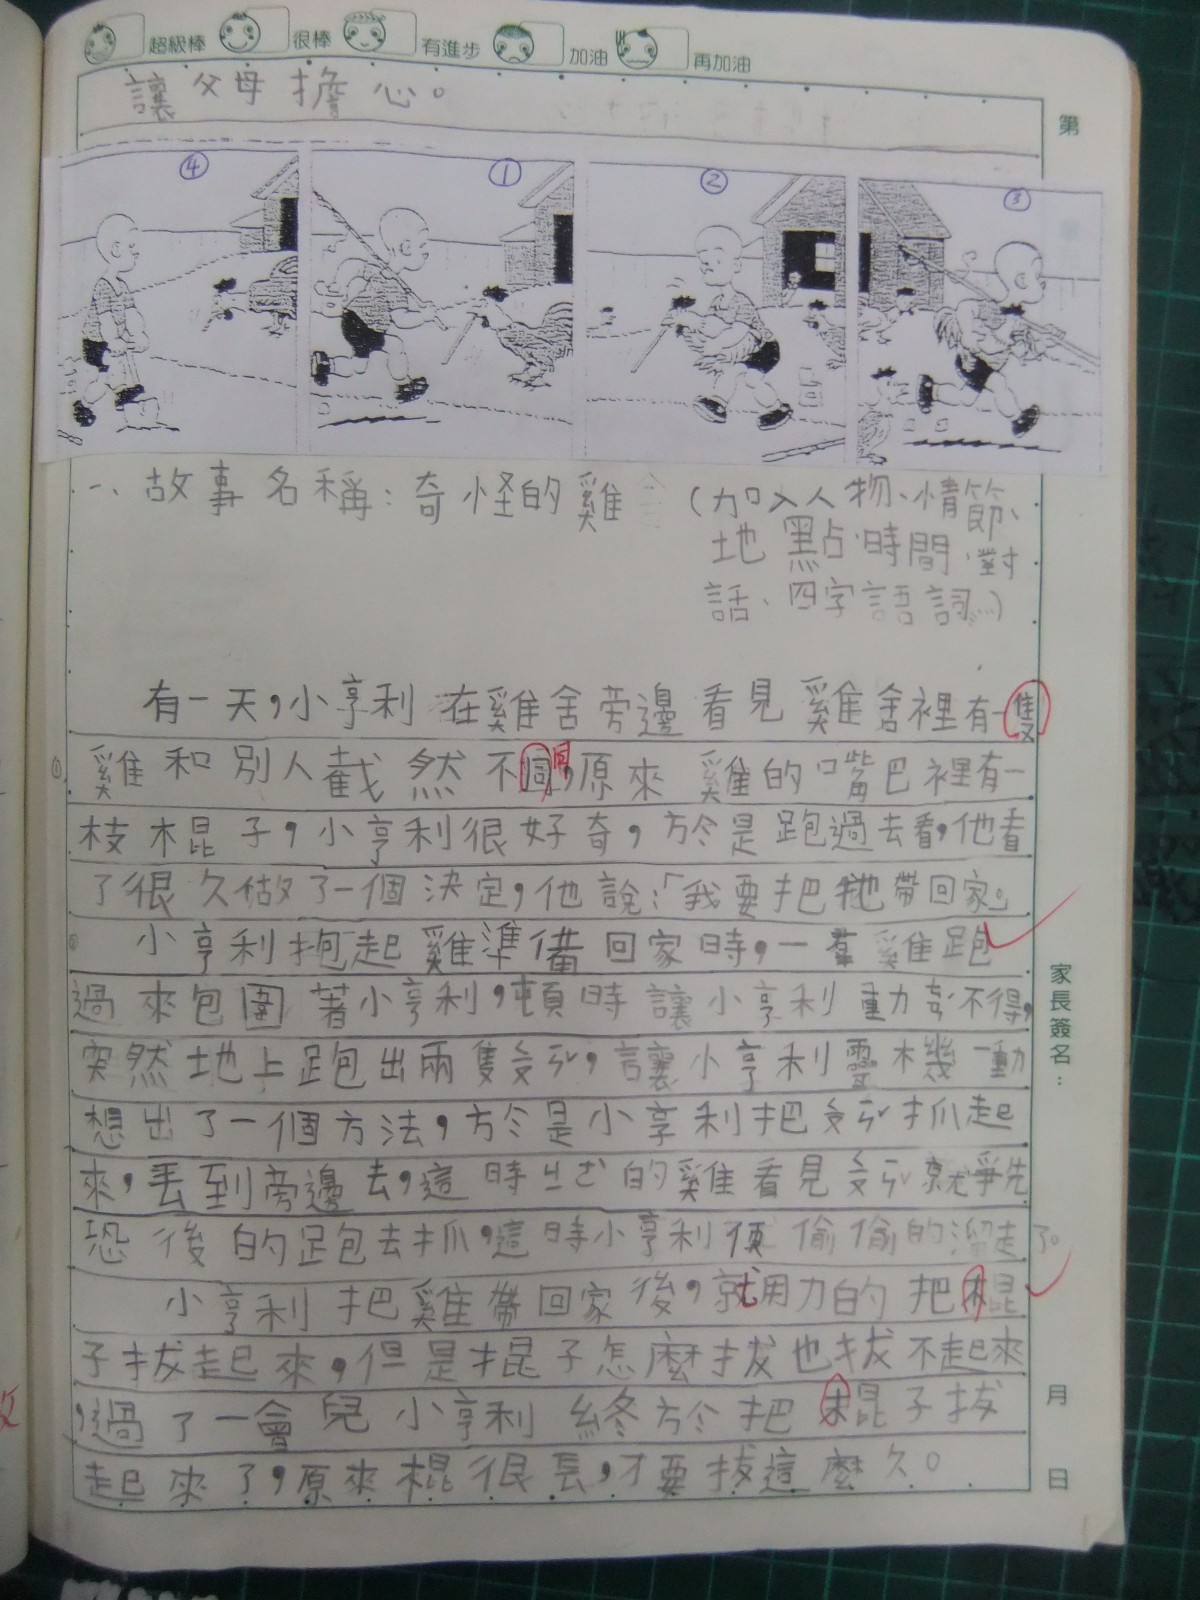 超級棒 很棒 有進步 加油 再加油
讓父母擔心。
第
④ ① ② ③
一、故事名稱：奇怪的雞 （加入人物、情節、
地點、時間、對
話、四字語詞…）
有一天，小亨利在雞舍旁邊看見雞舍裡有一隻
雞和別人截然不同，原來雞的嘴巴裡有一
枝棍子，小亨利很好奇，於是跑過去看，他看
了很久做了一個決定，他說：「我要把牠帶回家。
小亨利抱起雞準備回家時，一羣雞跑
過來包圍著小亨利，頓時讓小亨利動彈不得，
突然地上跑出兩隻ㄓㄨ，讓小亨利靈機一動
想出了一個方法，於是小亨利把抓起
來，丟到旁邊去，這時ㄓㄜˋ的雞看見就爭先
恐後的跑去抓，這時小亨利便偷偷的溜走了。
小亨利把雞帶回家後，就用力的把棍
子拔起來，但是棍子怎麼拔也拔不起來
，過了一會兒小亨利終於把棍子拔
起來了，原來棍很長，才要拔這麼久。
家長簽名：
月
日